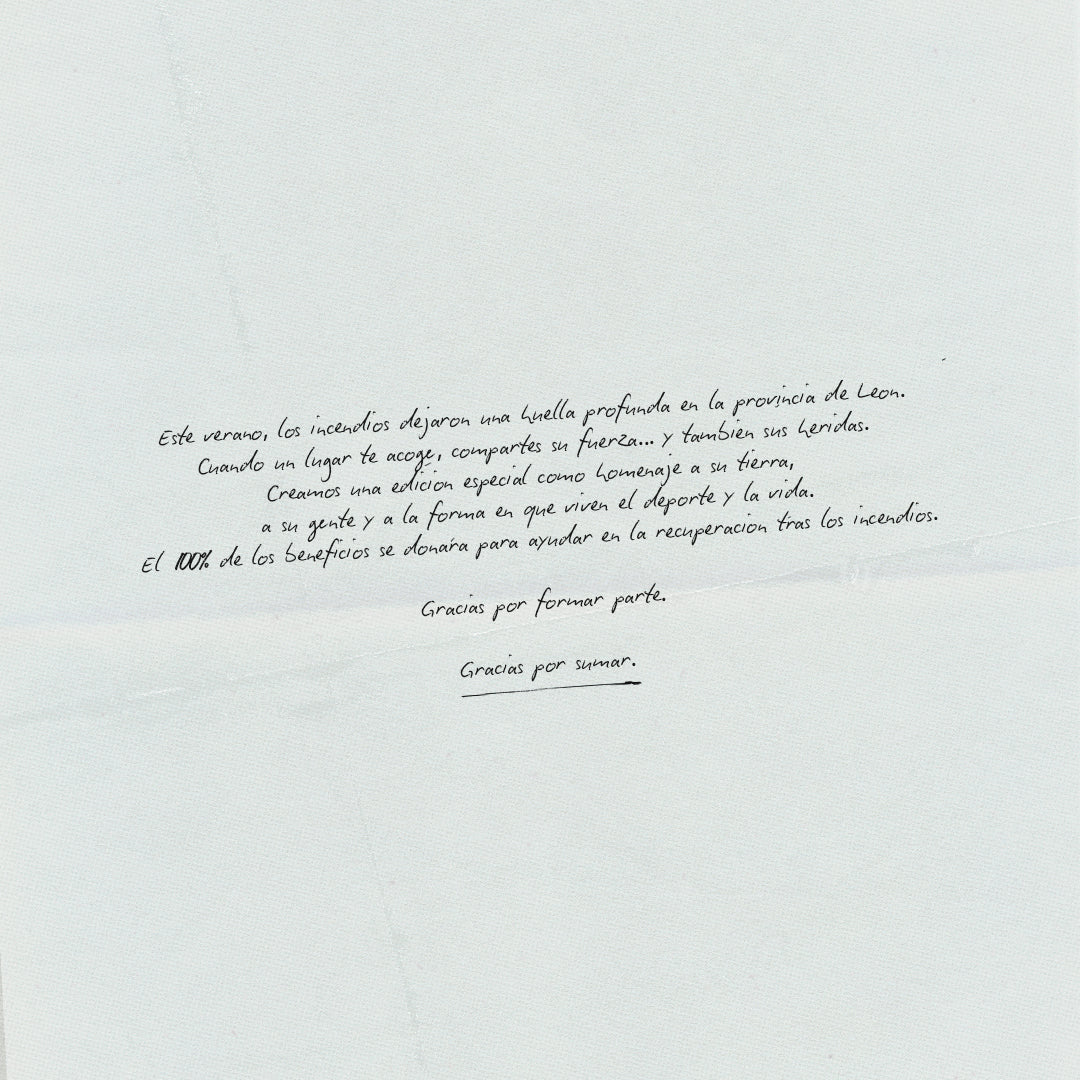 Este verano, los incendios dejaron una huella profunda en la provincia de Leon.
Cuando un lugar te acoge, compartes su fuerza... y también sus heridas.
Creamos una edición especial como homenaje a su tierra,
a su gente y a la forma en que viven el deporte y la vida.
El 100% de los beneficios se donará para ayudar en la recuperación tras los incendios.
Gracias por formar parte.
Gracias por sumar.